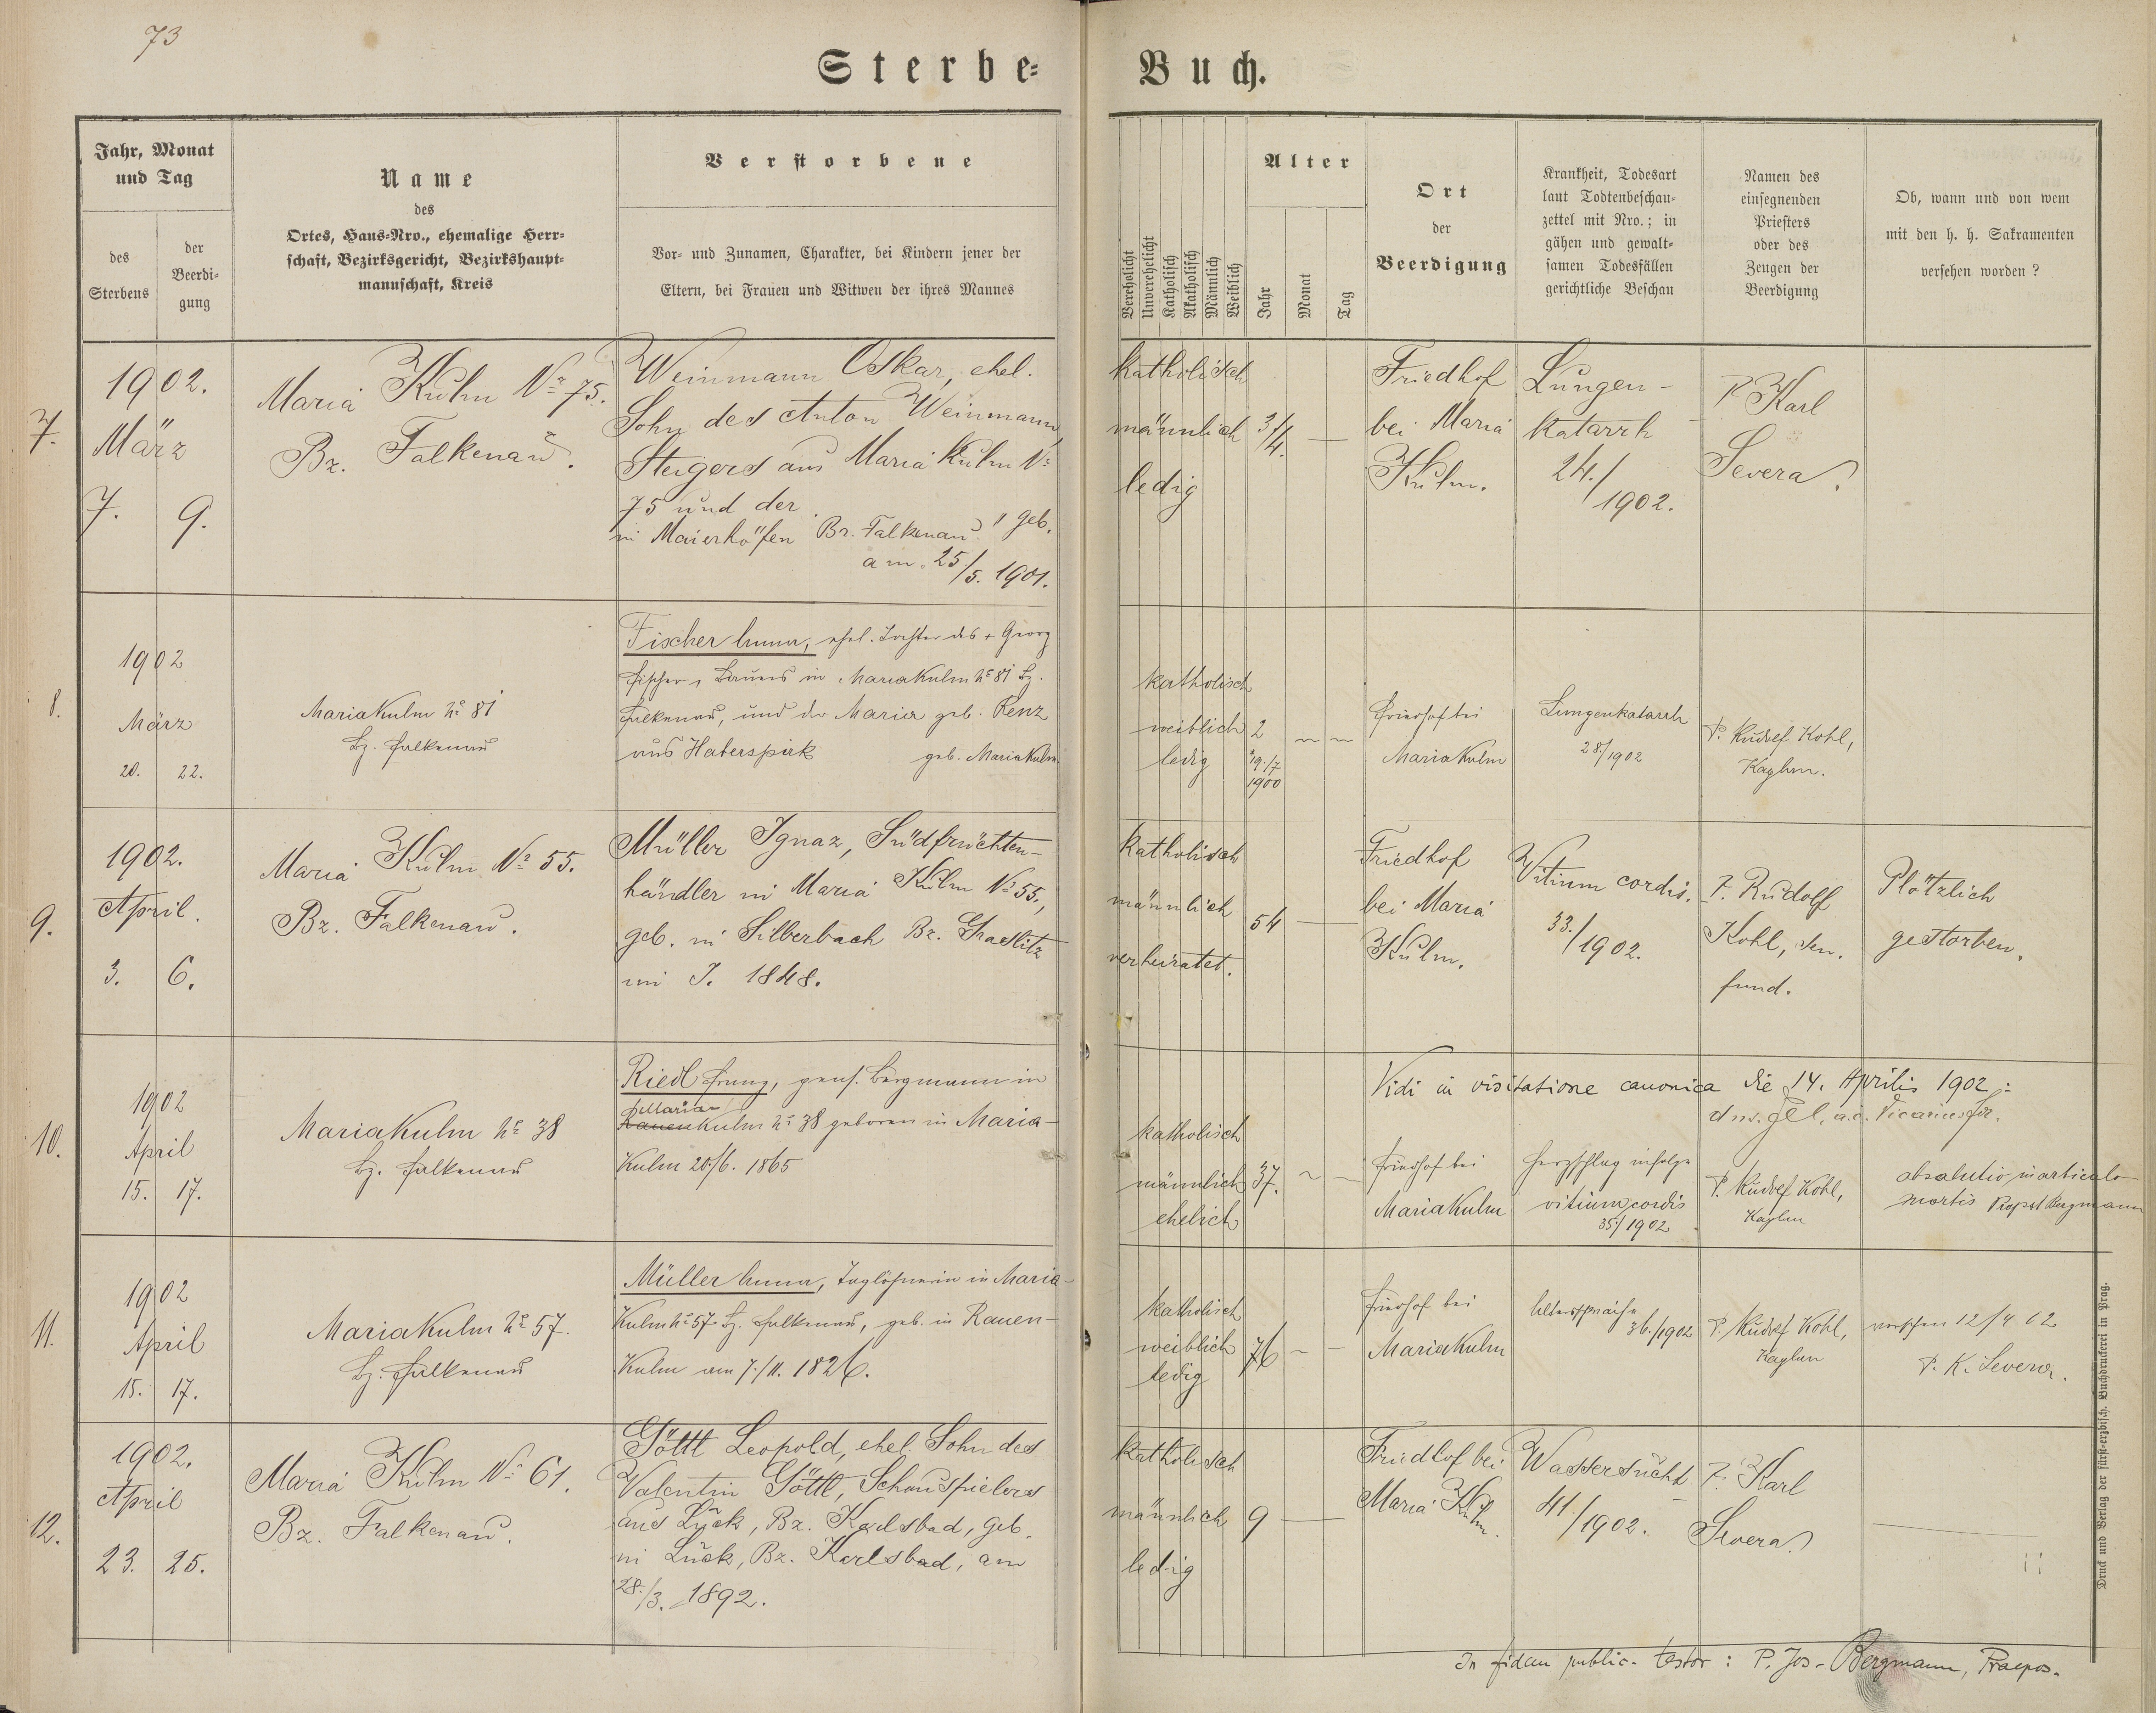 73
Sterbe-Buch.
Jahr, Monat
und Tag
des
Sterbens
der
Beerdi-
gung
Name
des
Ortes, Haus-Nro., ehemalige Herr-
schaft, Bezirksgericht, Bezirkshaupt-
mannschaft, Kreis
Verstorbene
Vor- und Zunamen, Charakter, bei Kindern jener der
Eltern, bei Frauen und Witwen der ihres Mannes
Verehelicht
Unverehelicht
Katholisch
Akatholisch
Männlich
Weiblich
Alter
Jahr
Monat
Tag
Ort
der
Beerdigung
Krankheit, Todesart
laut Todtenbeschau-
zettel mit Nro.; in
gähen und gewalt-
samen Todesfällen
gerichtliche Beschau
Namen des
einsegnenden
Priesters
oder des
Zeugen der
Beerdigung
Ob, wann und von wem
mit den h. h. Sakramenten
versehen worden?
7.
1902.
März
7. 9.
Maria Kulm Nr. 75.
Bz. Falkenau.
Weinmann Oskar, ehel.
Sohn des Anton Weinmann,
Steigers aus Maria Kulm No
75 und der
in Maierhöfen Bz. Falkenau geb.
am 25/5. 1901.
katholisch
männlich
ledig
3/4.
Friedhof
bei Maria
Kulm.
Lungen-
katarrh
24./1902.
P. Karl
Severa.
8.
1902
März
20. 22.
Maria Kulm No 81
Bz. Falkenau
Fischer Anna, ehel. Tochter des + Georg
Fischer, Bauers in Maria Kulm No 81 Bz.
Falkenau, und der Maria geb. Renz
aus Haberspirk geb. Maria Kulm.
katholisch
weiblich
ledig
2
*19./7
1900
Friedhof bei
Maria Kulm
Lungenkatarrh
28./1902
P. Rudolf Kohl,
Kaplan.
9.
1902.
April.
3. 6.
Maria Kulm No 55.
Bz. Falkenau.
Müller Ignaz, Südfrüchten-
händler in Maria Kulm No 55.,
geb. in Silberbach Bz. Graslitz
im J. 1848.
katholisch
männlich
verheiratet.
54
Friedhof
bei Maria
Kulm.
Vitium cordis.
33./1902.
P. Rudolf
Kohl,
fund.
Plötzlich
gestorben.
Vidi in visitatione canonica die 14. Aprilis 1902:
10.
1902
April
15. 17.
Maria Kulm No 38
Bz. Falkenau
Riedl Franz, pens. Bergmann in
Maria
Kulm No 38 geboren in Maria-
Kulm 20./6. 1865
katholisch
männlich
ehelich
37.
Friedhof bei
Maria Kulm
Herzschlag infolge
vitium cordis
35./1902
P. Rudolf Kohl,
Kaplan
absolutio in articulo
mortis Propst Bergmann
11.
1902
April
15. 17.
Maria Kulm No 57.
Bz. Falkenau
Müller Anna, Taglöhnerin in Maria-
Kulm No 57 Bz. Falkenau, geb. in Rauen-
Kulm am 7./11. 1826.
katholisch
weiblich
ledig
76
Friedhof bei
Maria Kulm
Altersschwäche
36./1902
P. Rudolf Kohl,
Kaplan
versehen 12/4 02
P. K. Severa.
12.
1902.
April
23. 25.
Maria Kulm No 61.
Bz. Falkenau.
Göttl Leopold, ehel. Sohn des
Valentin Göttl, Schauspielers
aus Luck, Bz. Karlsbad, geb.
in Luck, Bz. Karlsbad, am
28./3. 1892.
katholisch
männlich
ledig
9
Friedhof bei
Maria Kulm.
Wassersucht
41./1902.
P. Karl
Severa
In fidem public. testor: P. Jos. Bergmann, Praepos.
Druck und Verlag der fürst-erzbisch. Buchdruckerei in Prag.